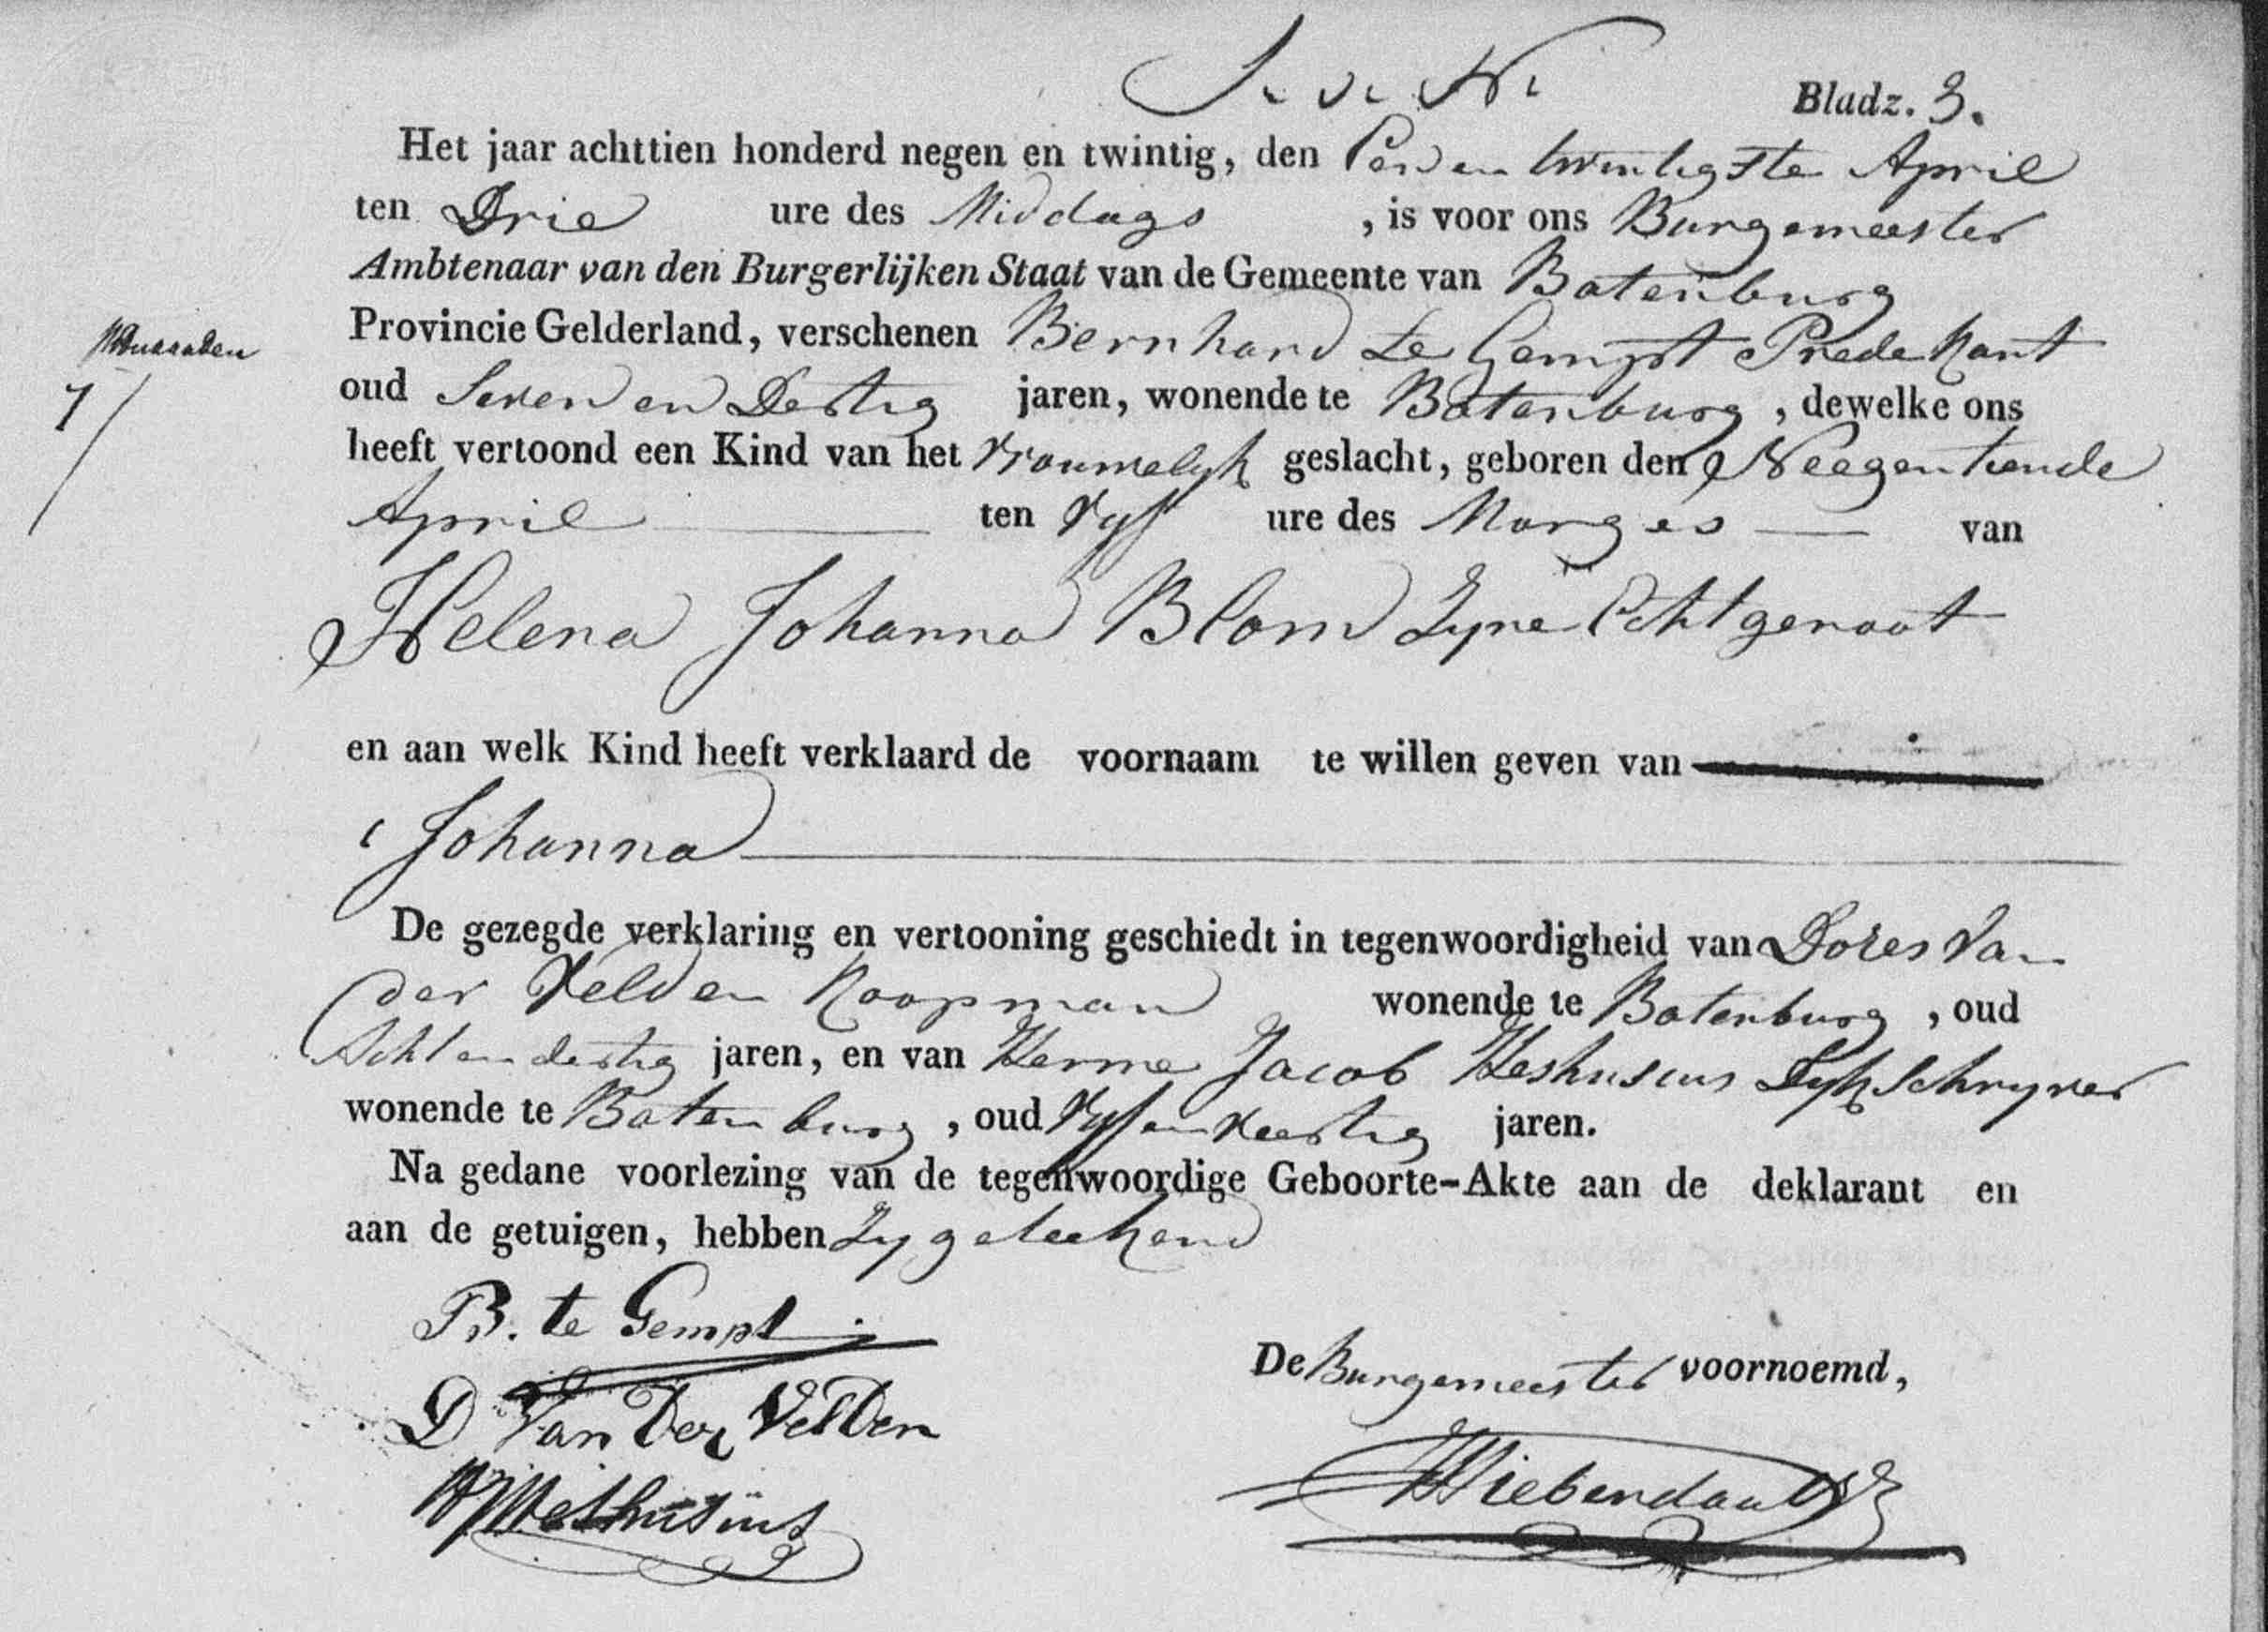 Bladz. 3.
Het jaar achttien honderd negen en twintig, den Een en twintigste April
ten Drie ure des Middags , is voor ons Burgemeester
Ambtenaar van den Burgerlijken Staat van de Gemeente van Batenburg
Provincie Gelderland, verschenen Bernhard te Gempt Predekant
oud Seven en Dertig jaren, wonende te Batenburg , dewelke ons
7
heeft vertoond een Kind van het Vrouwelyk geslacht, geboren den Neegentiende
April ten Vyf ure des Morges van
Helena Johanna Blom Zyne Echtgenoot
en aan welk Kind heeft verklaard de voornaam te willen geven van
Johanna
De gezegde verklaring en vertooning geschiedt in tegenwoordigheid van Dores Van
der Velden Koopman wonende te Batenburg , oud
Acht en dertig jaren, en van Herme Jacob Heshusius Dykschryver
wonende te Batenburg , oud Vyf en Veertig jaren.
Na gedane voorlezing van de tegenwoordige Geboorte-Akte aan de deklarant en
aan de getuigen, hebben Zy geteekend
B. te Gempt
De Burgemeester voornoemd,
D Van Der Velden
HJHeshusius